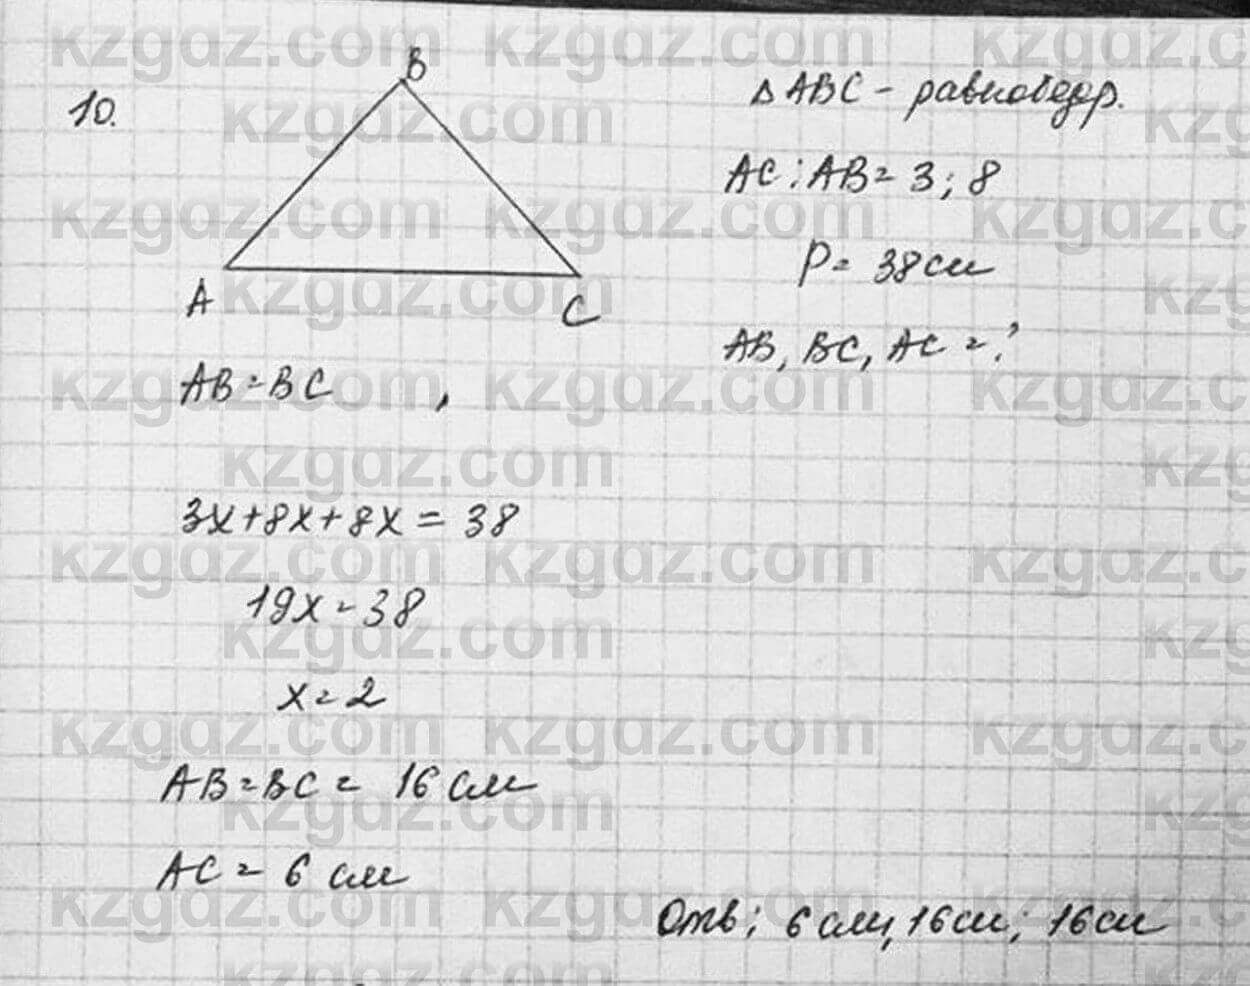 10.
B
A
C
△ABC - равнобедр.
AC : AB = 3 ; 8
P = 38 см
AB, BC, AC = ?
AB = BC ,
3x + 8x + 8x = 38
19x = 38
x = 2
AB = BC = 16 см
AC = 6 см
Отв ; 6 см, 16 см ; 16 см
kzgdz.com